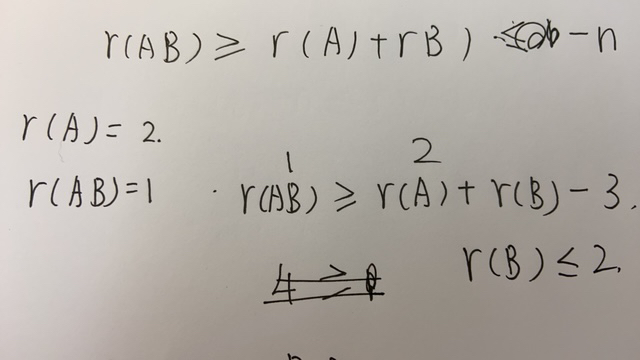 r(AB) ≥ r(A)+rB) -n
r(A)= 2.
1 2
r(AB)=1 · r(AB) ≥ r(A)+ r(B)-3.
r(B) ≤ 2.